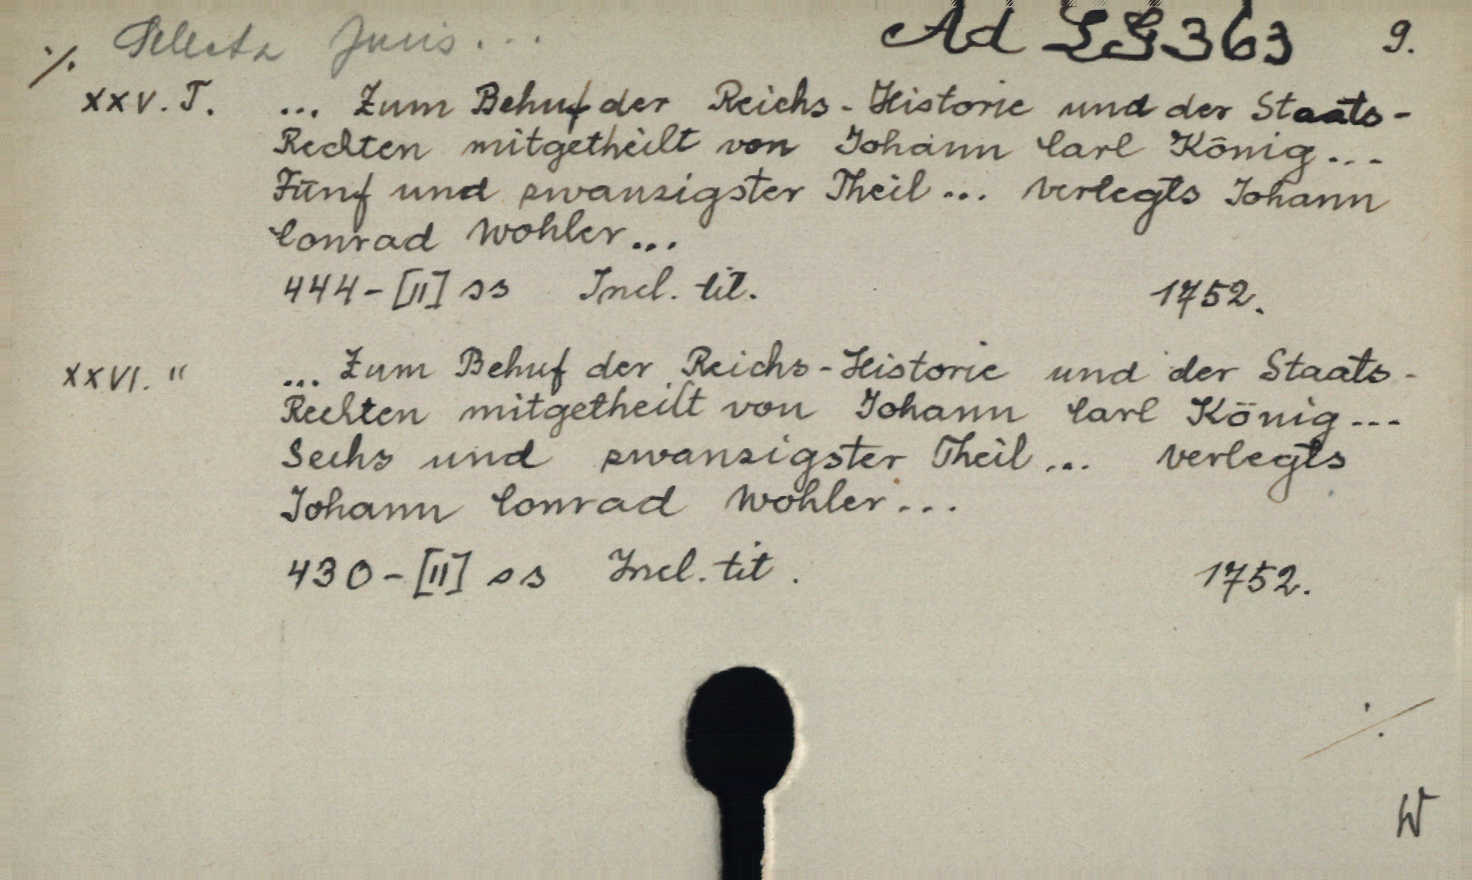 ./. Selecta Juris... Ad LG 363 9.
XXV. T. ... Zum Behuf der Reichs-Historie und der Staats-
Rechten mitgetheilt von Johann Carl König...
Fünf und zwanzigster Theil... verlegts Johann
Conrad Wohler...
444-[II] ss Incl. tit. 1752.
XXVI. " ... Zum Behuf der Reichs-Historie und der Staats-
Rechten mitgetheilt von Johann Carl König...
Sechs und zwanzigster Theil... verlegts
Johann Conrad Wohler...
430-[II] ss Incl. tit. 1752.
./.
W